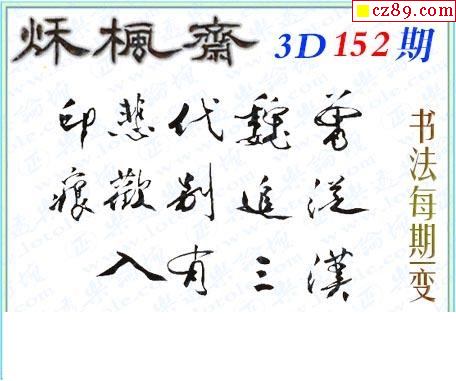 cz89.com
秌楓齋
3D152期
曾從漢
魏追三
代別有
悲歡入
印痕
书法每期一变